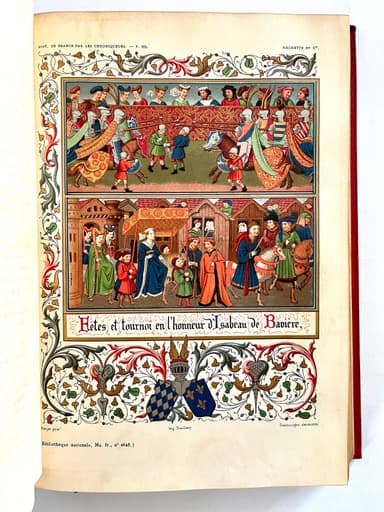 HIST. DE FRANCE PAR LES CHRONIQUEURS. — T. III.
HACHETTE ET Cⁱᵉ
Fêtes et tournoi en l'honneur d'Isabeau de Bavière,
(Bibliothèque nationale, Ms. fr., nº 2648.)